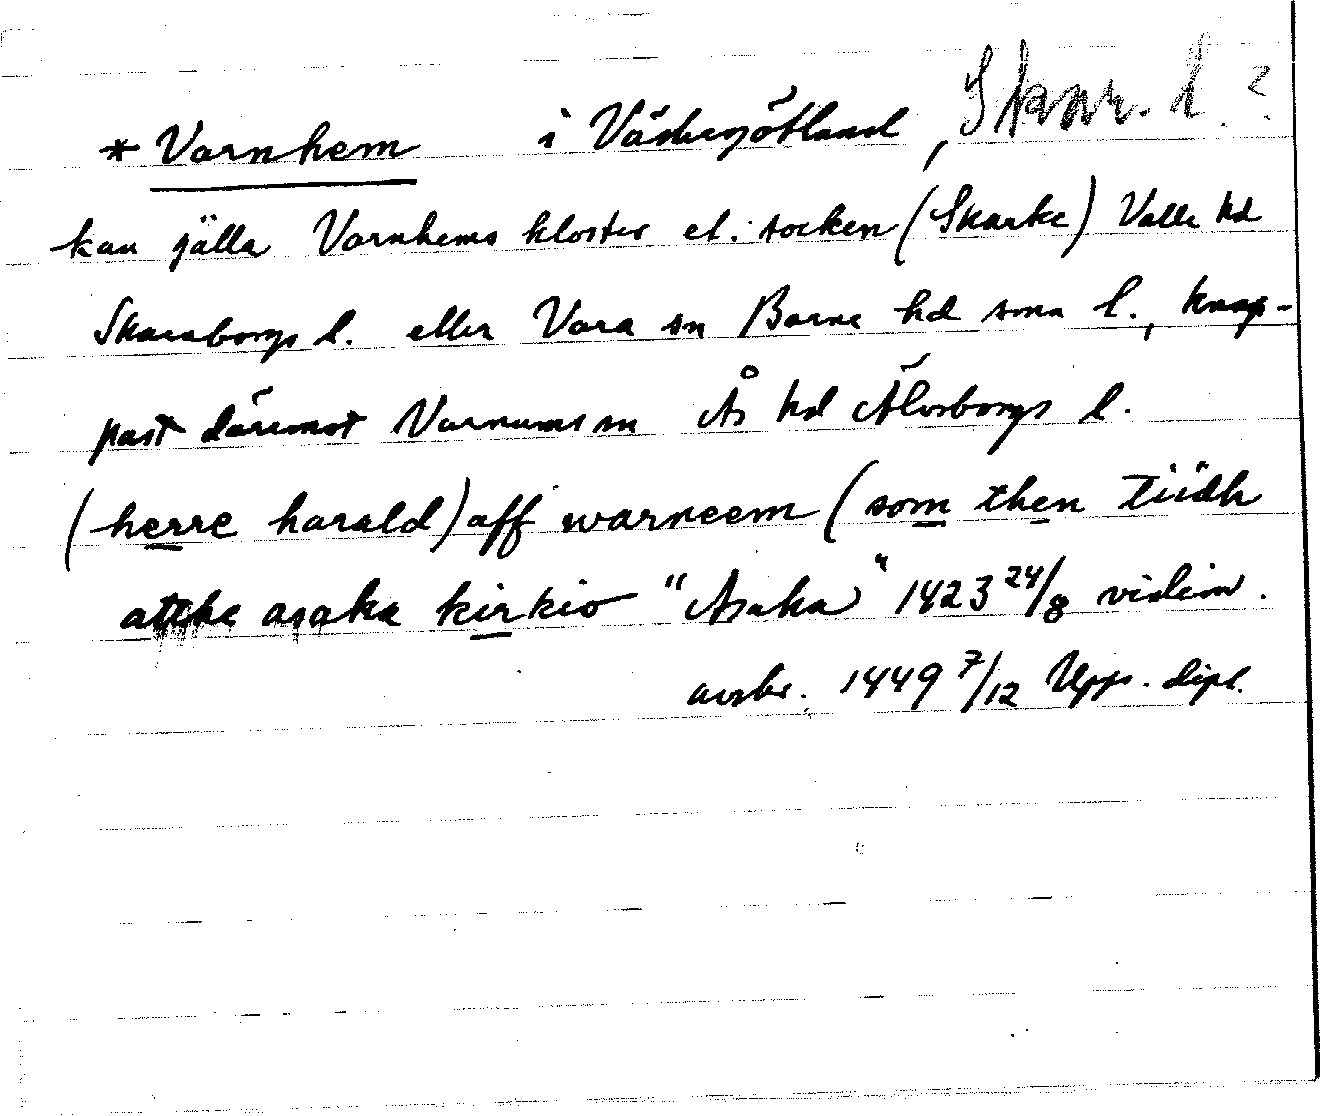 * Varnhem i Västergötland, Skar. l.?
kan gälla Varnhems kloster el. socken (Skarke) Valle hd
Skaraborgs l. eller Vara sn Barne hd sma l., knap-
past däremot Varnums sn Ås hd Älvsborgs l.
(herre harald) aff warneem (som then tiidh
atthe asaka kirkio "Asaka" 1423 24/8 vidim.
avskr. 1449 7/12 Upps. dipl.